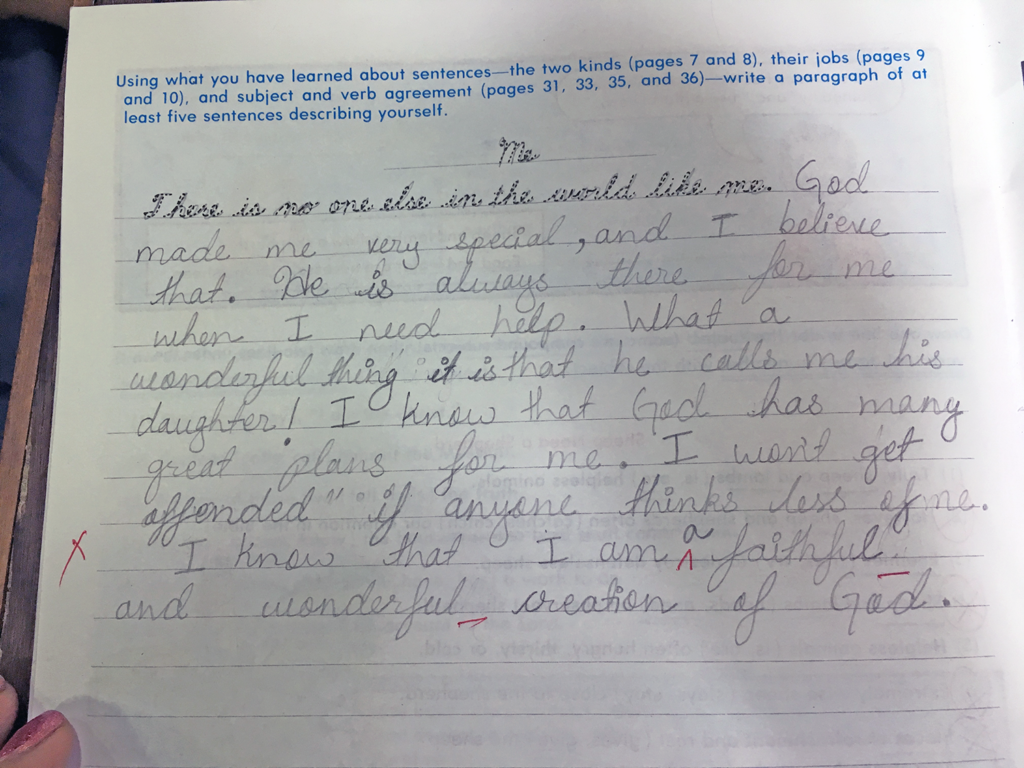 Using what you have learned about sentences—the two kinds (pages 7 and 8), their jobs (pages 9
and 10), and subject and verb agreement (pages 31, 33, 35, and 36)—write a paragraph of at
least five sentences describing yourself.
Me
There is no one else in the world like me. God
made me very special, and I believe
that. He is always there for me
when I need help. What a
wonderful thing it is that he calls me his
daughter! I know that God has many
great plans for me. I won't get
offended if anyone thinks less of me.
I know that I am a faithful
and wonderful creation of God.